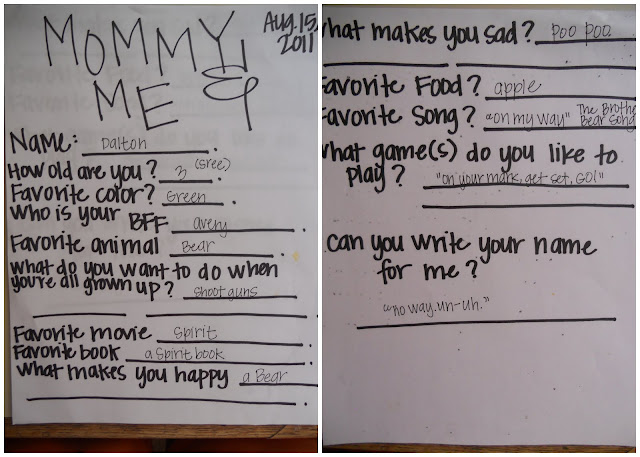 MOMMY &
ME
Aug. 15,
2011
Name: Dalton.
How old are you? 3 (sree).
Favorite color? Green.
who is your BFF avery.
Favorite animal Bear.
what do you want to do when
you're all grown up? shoot guns
Favorite movie Spirit.
Favorite book a Spirit book.
what makes you happy a Bear
what makes you sad? poo poo
Favorite Food? apple
Favorite Song? "on my way" The Brother
Bear Song
what game(s) do you like to
play? "on your mark, get set, GO!"
can you write your name
for me?
"no way. un-uh."